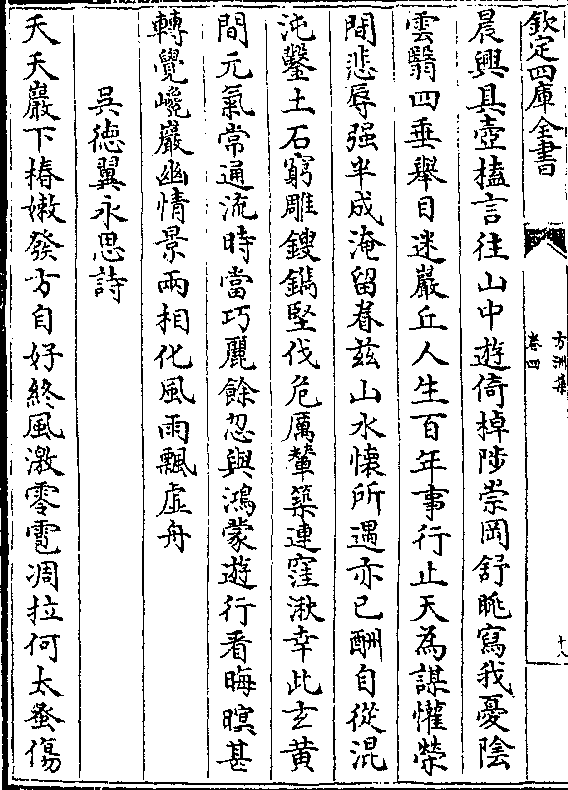 欽定四庫全書
方洲集
卷四
十八
晨興具壺榼言往山中遊倚棹陟崇岡舒眺寫我憂陰
雲翳四垂舉目迷巖丘人生百年事行止天為謀懽榮
間悲辱强半成淹留眷茲山水懷所遇亦已酬自從混
沌鑿土石窮雕鎪鐫堅伐危厲輦築連窪湫幸此玄黃
間元氣常通流時當巧麗餘忽與鴻蒙遊行看晦暝甚
轉覺巉巖幽情景兩相化風雨飄虛舟
吳徳翼永思詩
夭夭巖下椿嫩發方自好終風激零雹凋拉何太蚤傷